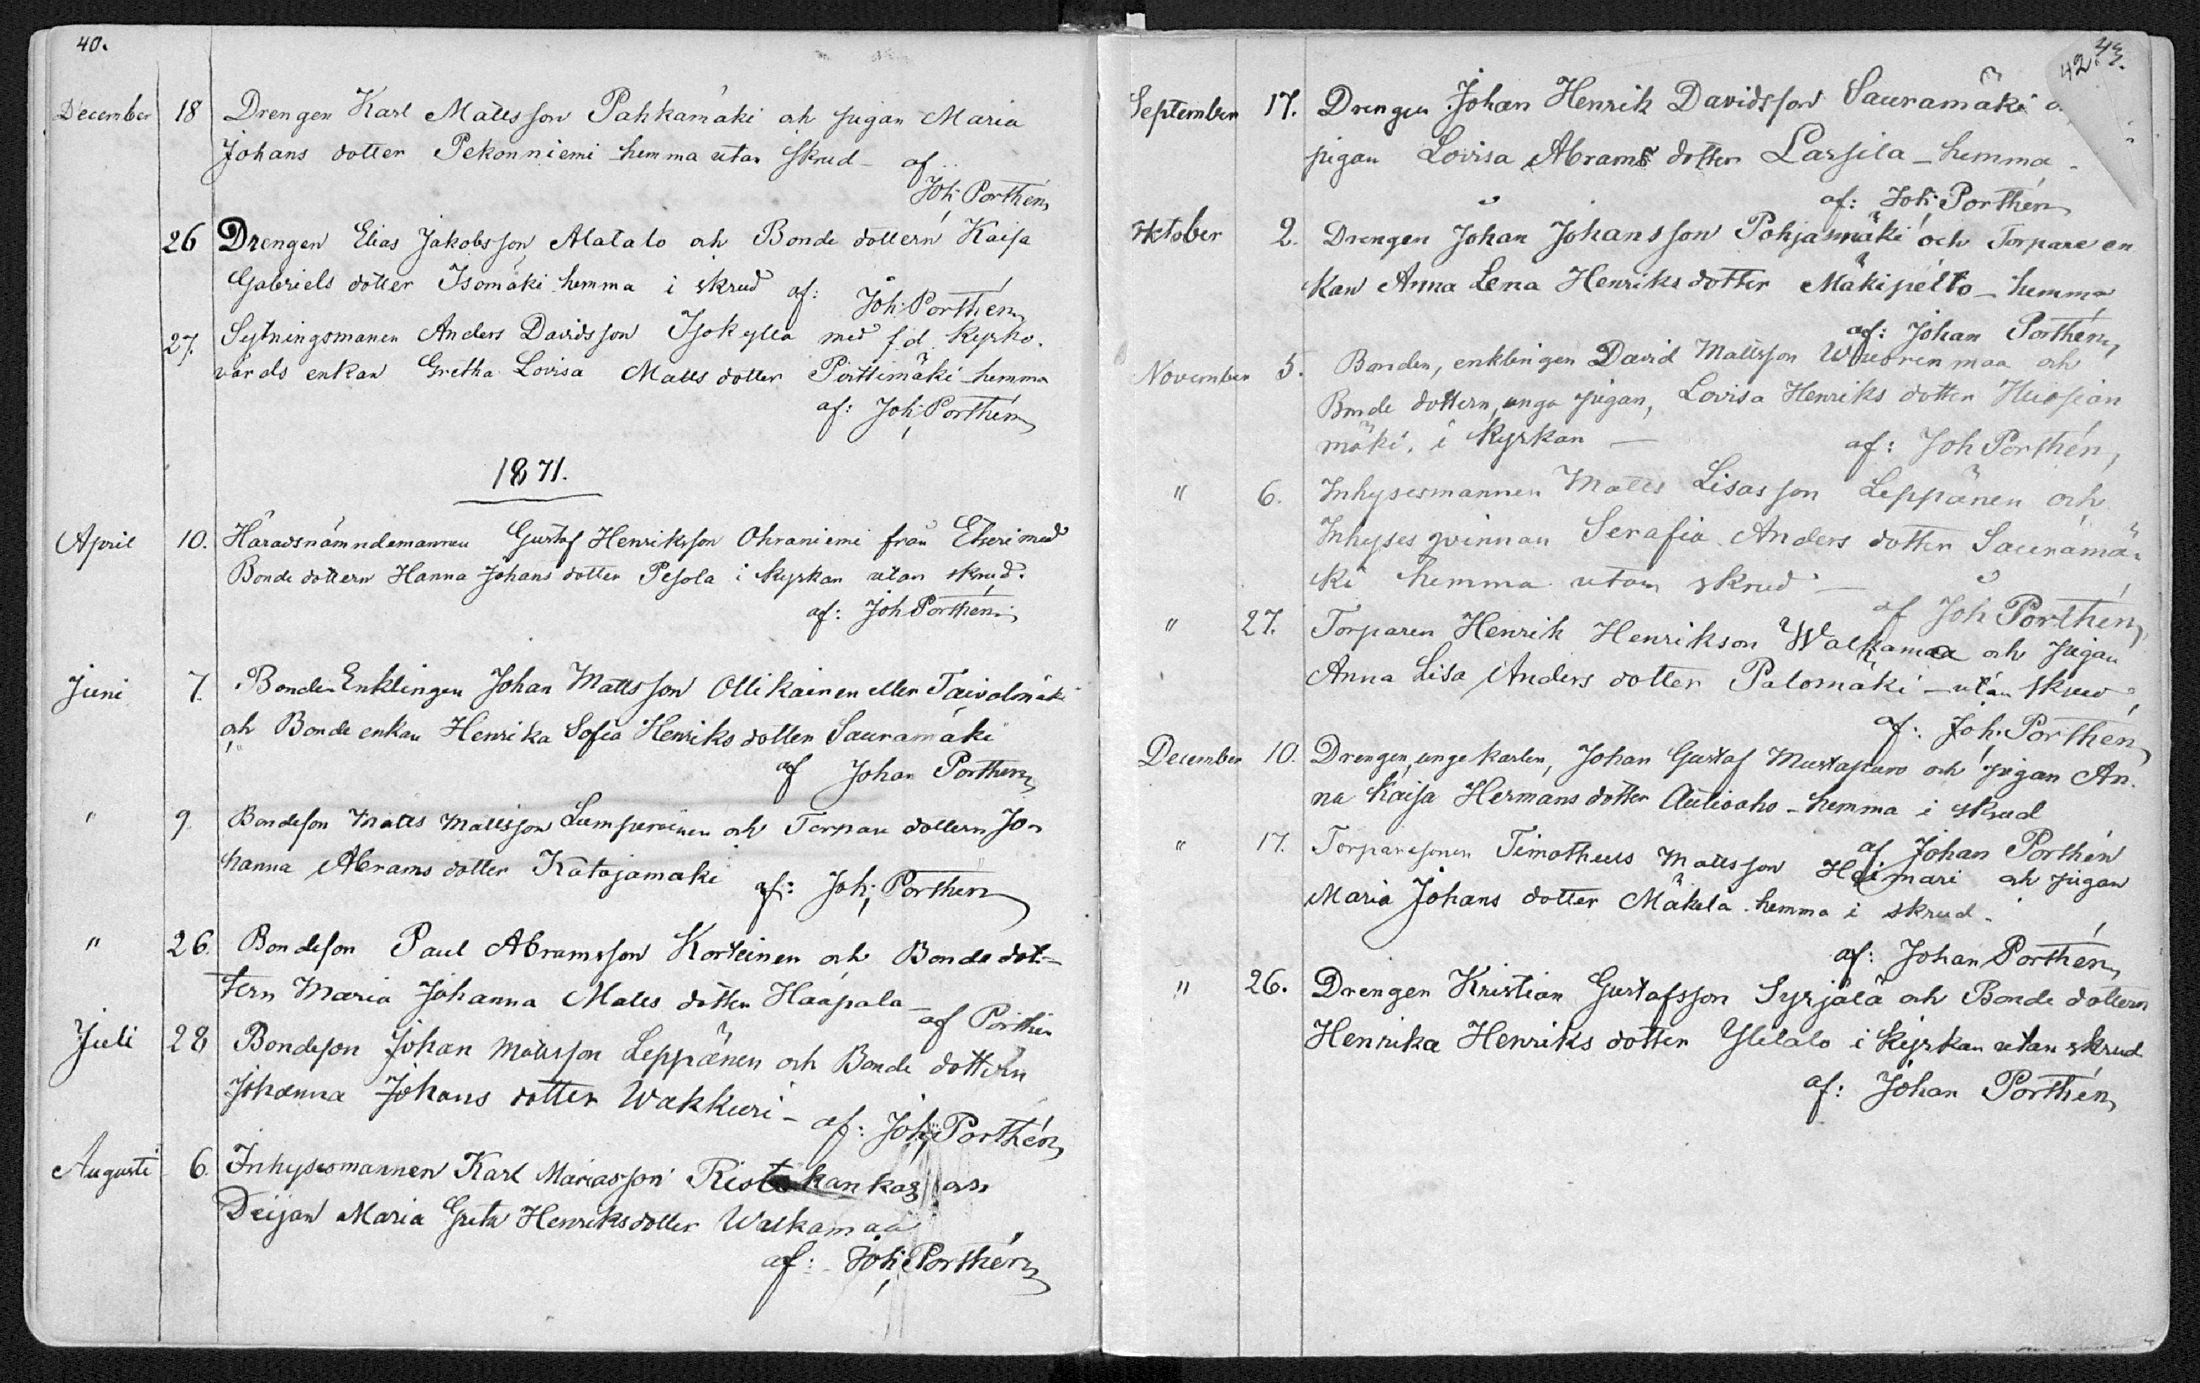 40.
December 18 Drengen Karl Mattsson Pahkamäki och pigan Maria
Johans dotter Pekonniemi hemma utan skrud - af
Joh: Porthén
26 Drengen Elias Jakobsson Alatalo och Bonde dottern Kaisa
Gabriels dotter Isomäki hemma i skrud af:
Joh: Porthén
27. Sytningsmanen Anders Davidsson Isokylla med f.d. kyrko-
värds enkan Gretha Lovisa Matts dotter Pirttimäki - hemma
af: Joh: Porthén
1871.
April 10. Häradsnämndemannen Gustaf Henriksson Ohraniemi från Etseri med
Bonde dottern Hanna Johans dotter Pesola i kyrkan utan skrud.
af: Joh Porthén
Juni 7. Bonde Enklingen Johan Mattsson Ollikainen eller Taivalmäki
och Bonde enkan Henrika Sofia Henriks dotter Sauramäki
af Johan Porthén
" 9. Bondeson Matts Mattsson Lumperoinen och Torpare dottern Jo-
hanna Abrams dotter Katajamäki af: Joh: Porthén
" 26. Bondeson Paul Abramsson Korteinen och Bonde dot-
tern Maria Johanna Matts dotter Haapala -
af Porthén
Juli 28 Bondeson Johan Mattsson Leppänen och Bonde dottern
Johanna Johans dotter Wakkuri -
af: Joh: Porthén
Augusti 6. Inhysesmannen Karl Mariasson Ristokankas och
Deijan Maria Greta Henriksdotter Walkamaa
af: Joh: Porthén
42. 43.
September 17. Drengen Johan Henrik Davidsson Sauramäki
pigan Lovisa Abrams dotter Lassila - hemma -
af: Joh: Porthén
Oktober 2. Drengen Johan Johansson Pohjasmäki och Torpare en
kan Anna Lena Henriks dotter Mäkipelto - hemma
af: Johan Porthén
November 5. Bonden, enklingen David Mattsson Wuorenmaa och
Bonde dottern, unga pigan, Lovisa Henriks dotter Huopian
mäki, i kyrkan - af: Joh Porthén,
" 6. Inhysesmannen Matts Lisasson Leppänen och
Inhyses qvinnan Serafia Anders dotter Sauramä-
ki hemma utan skrud -
af Joh Porthén
" 27. Torparen Henrik Henrikson Walkamaa och pigan
Anna Lisa Anders dotter Palomäki - utan skrud
af: Joh: Porthén
December 10. Drengen, unge karlen, Johan Gustaf Mustapuro och pigan An-
na Kaisa Hermans dotter Autioaho - hemma i skrud
af Johan Porthén
" 17. Torparesonen Timotheus Mattsson Heimari och pigan
Maria Johans dotter Mäkelä hemma i skrud -
af: Johan Porthén
" 26. Drengen Kristian Gustafsson Syrjälä och Bonde dottern
Henrika Henriks dotter Ylitalo i kyrkan utan skrud
af: Johan Porthén